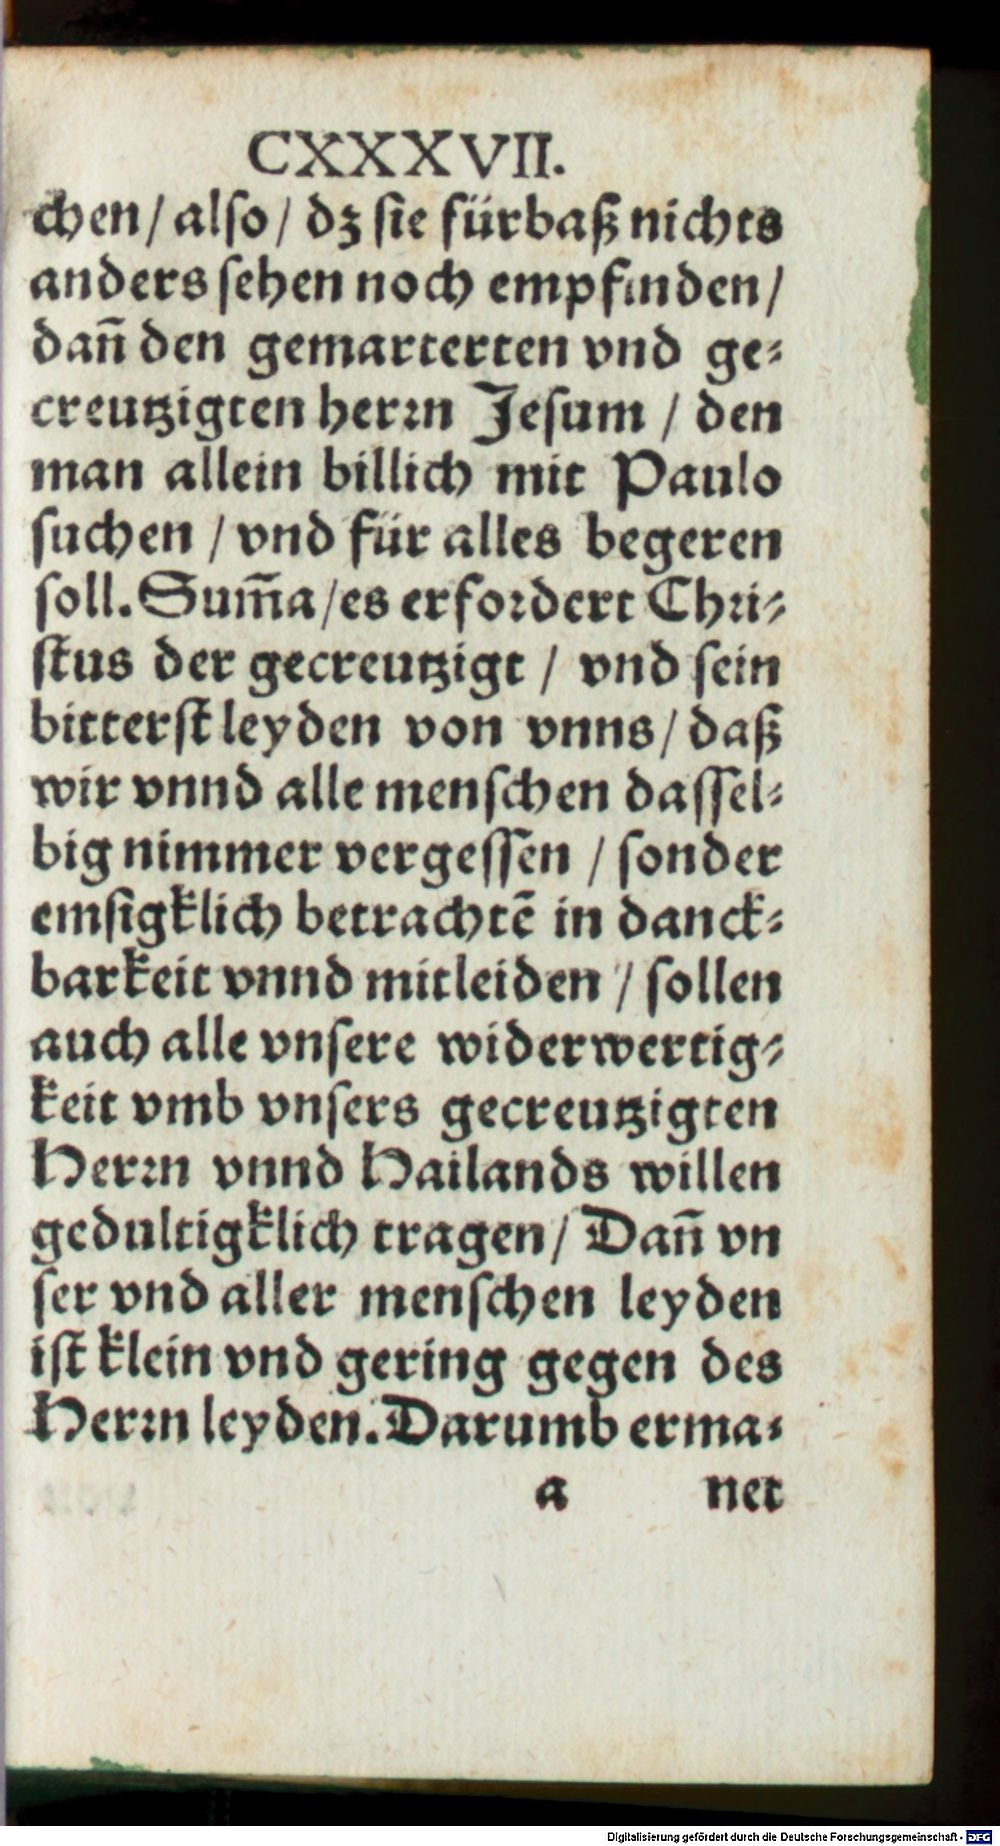 CXXXVII.
chen / also / dz sie fürbaß nichts
anders sehen noch empfinden /
dañ den gemarterten vnd ge⸗
creutzigten herrn Jesum / den
man allein billich mit Paulo
suchen / vnd für alles begeren
soll. Sum̃a / es erfordert Chri⸗
stus der gecreutzigt / vnd sein
bitterst leyden von vnns / daß
wir vnnd alle menschen dassel⸗
big nimmer vergessen / sonder
emsigklich betrachtẽ in danck⸗
barkeit vnnd mitleiden / sollen
auch alle vnsere widerwertig⸗
keit vmb vnsers gecreutzigten
Herrn vnnd Hailands willen
gedultigklich tragen / Dañ vn
ser vnd aller menschen leyden
ist klein vnd gering gegen des
Herrn leyden. Darumb erma⸗
a net
Digitalisierung gefördert durch die Deutsche Forschungsgemeinschaft - DFG